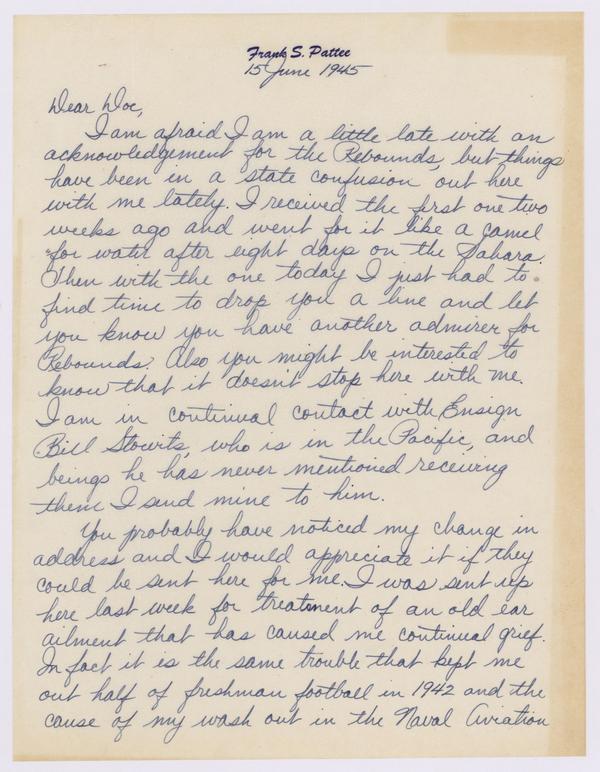 Frank S. Pattee
15 June 1945
Dear Doc,
I am afraid I am a little late with an
acknowledgement for the Rebounds, but things
have been in a state confusion out here
with me lately. I received the first one two
weeks ago and went for it like a camel
for water after eight days on the Sahara.
Then with the one today I just had to
find time to drop you a line and let
you know you have another admirer for
Rebounds. Also you might be interested to
know that it doesn't stop here with me.
I am in continual contact with Ensign
Bill Stowits, who is in the Pacific, and
beings he has never mentioned receiving
them I send mine to him.
You probably have noticed my change in
address and I would appreciate it if they
could be sent here for me. I was sent up
here last week for treatment of an old ear
ailment that has caused me continual grief.
In fact it is the same trouble that kept me
out half of freshman football in 1942 and the
cause of my wash out in the Naval Aviation